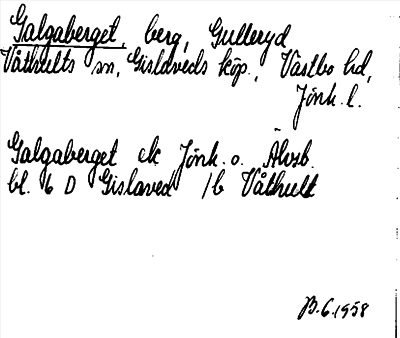 Galgaberget, berg, Gulleryd
Våthults sn, Gislaveds köp., Västbo hd,
Jönk. l.
Galgaberget ek Jönk. o. Älvsb.
bl. 6 D Gislaved 1b Våthult
B. 6. 1958